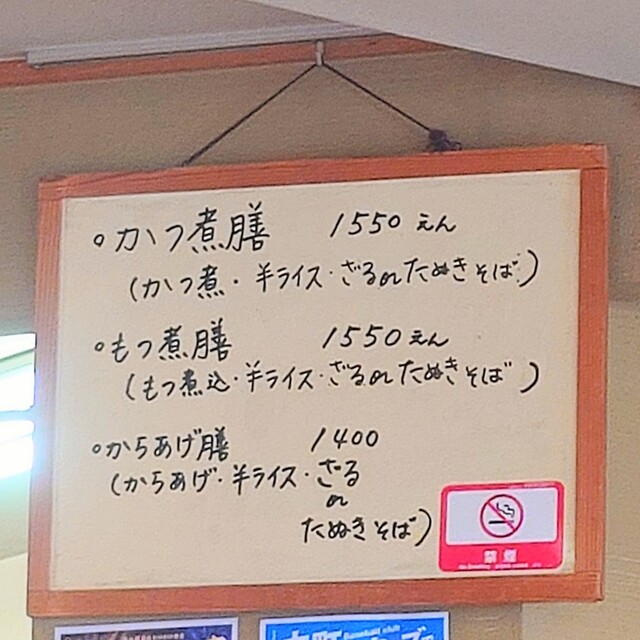 ・かつ煮膳 1550えん
(かつ煮・半ライス・ざるorたぬきそば)
・もつ煮膳 1550えん
(もつ煮込・半ライス・ざるorたぬきそば)
・からあげ膳 1400
(からあげ・半ライス・ざる
or
たぬきそば)
禁煙